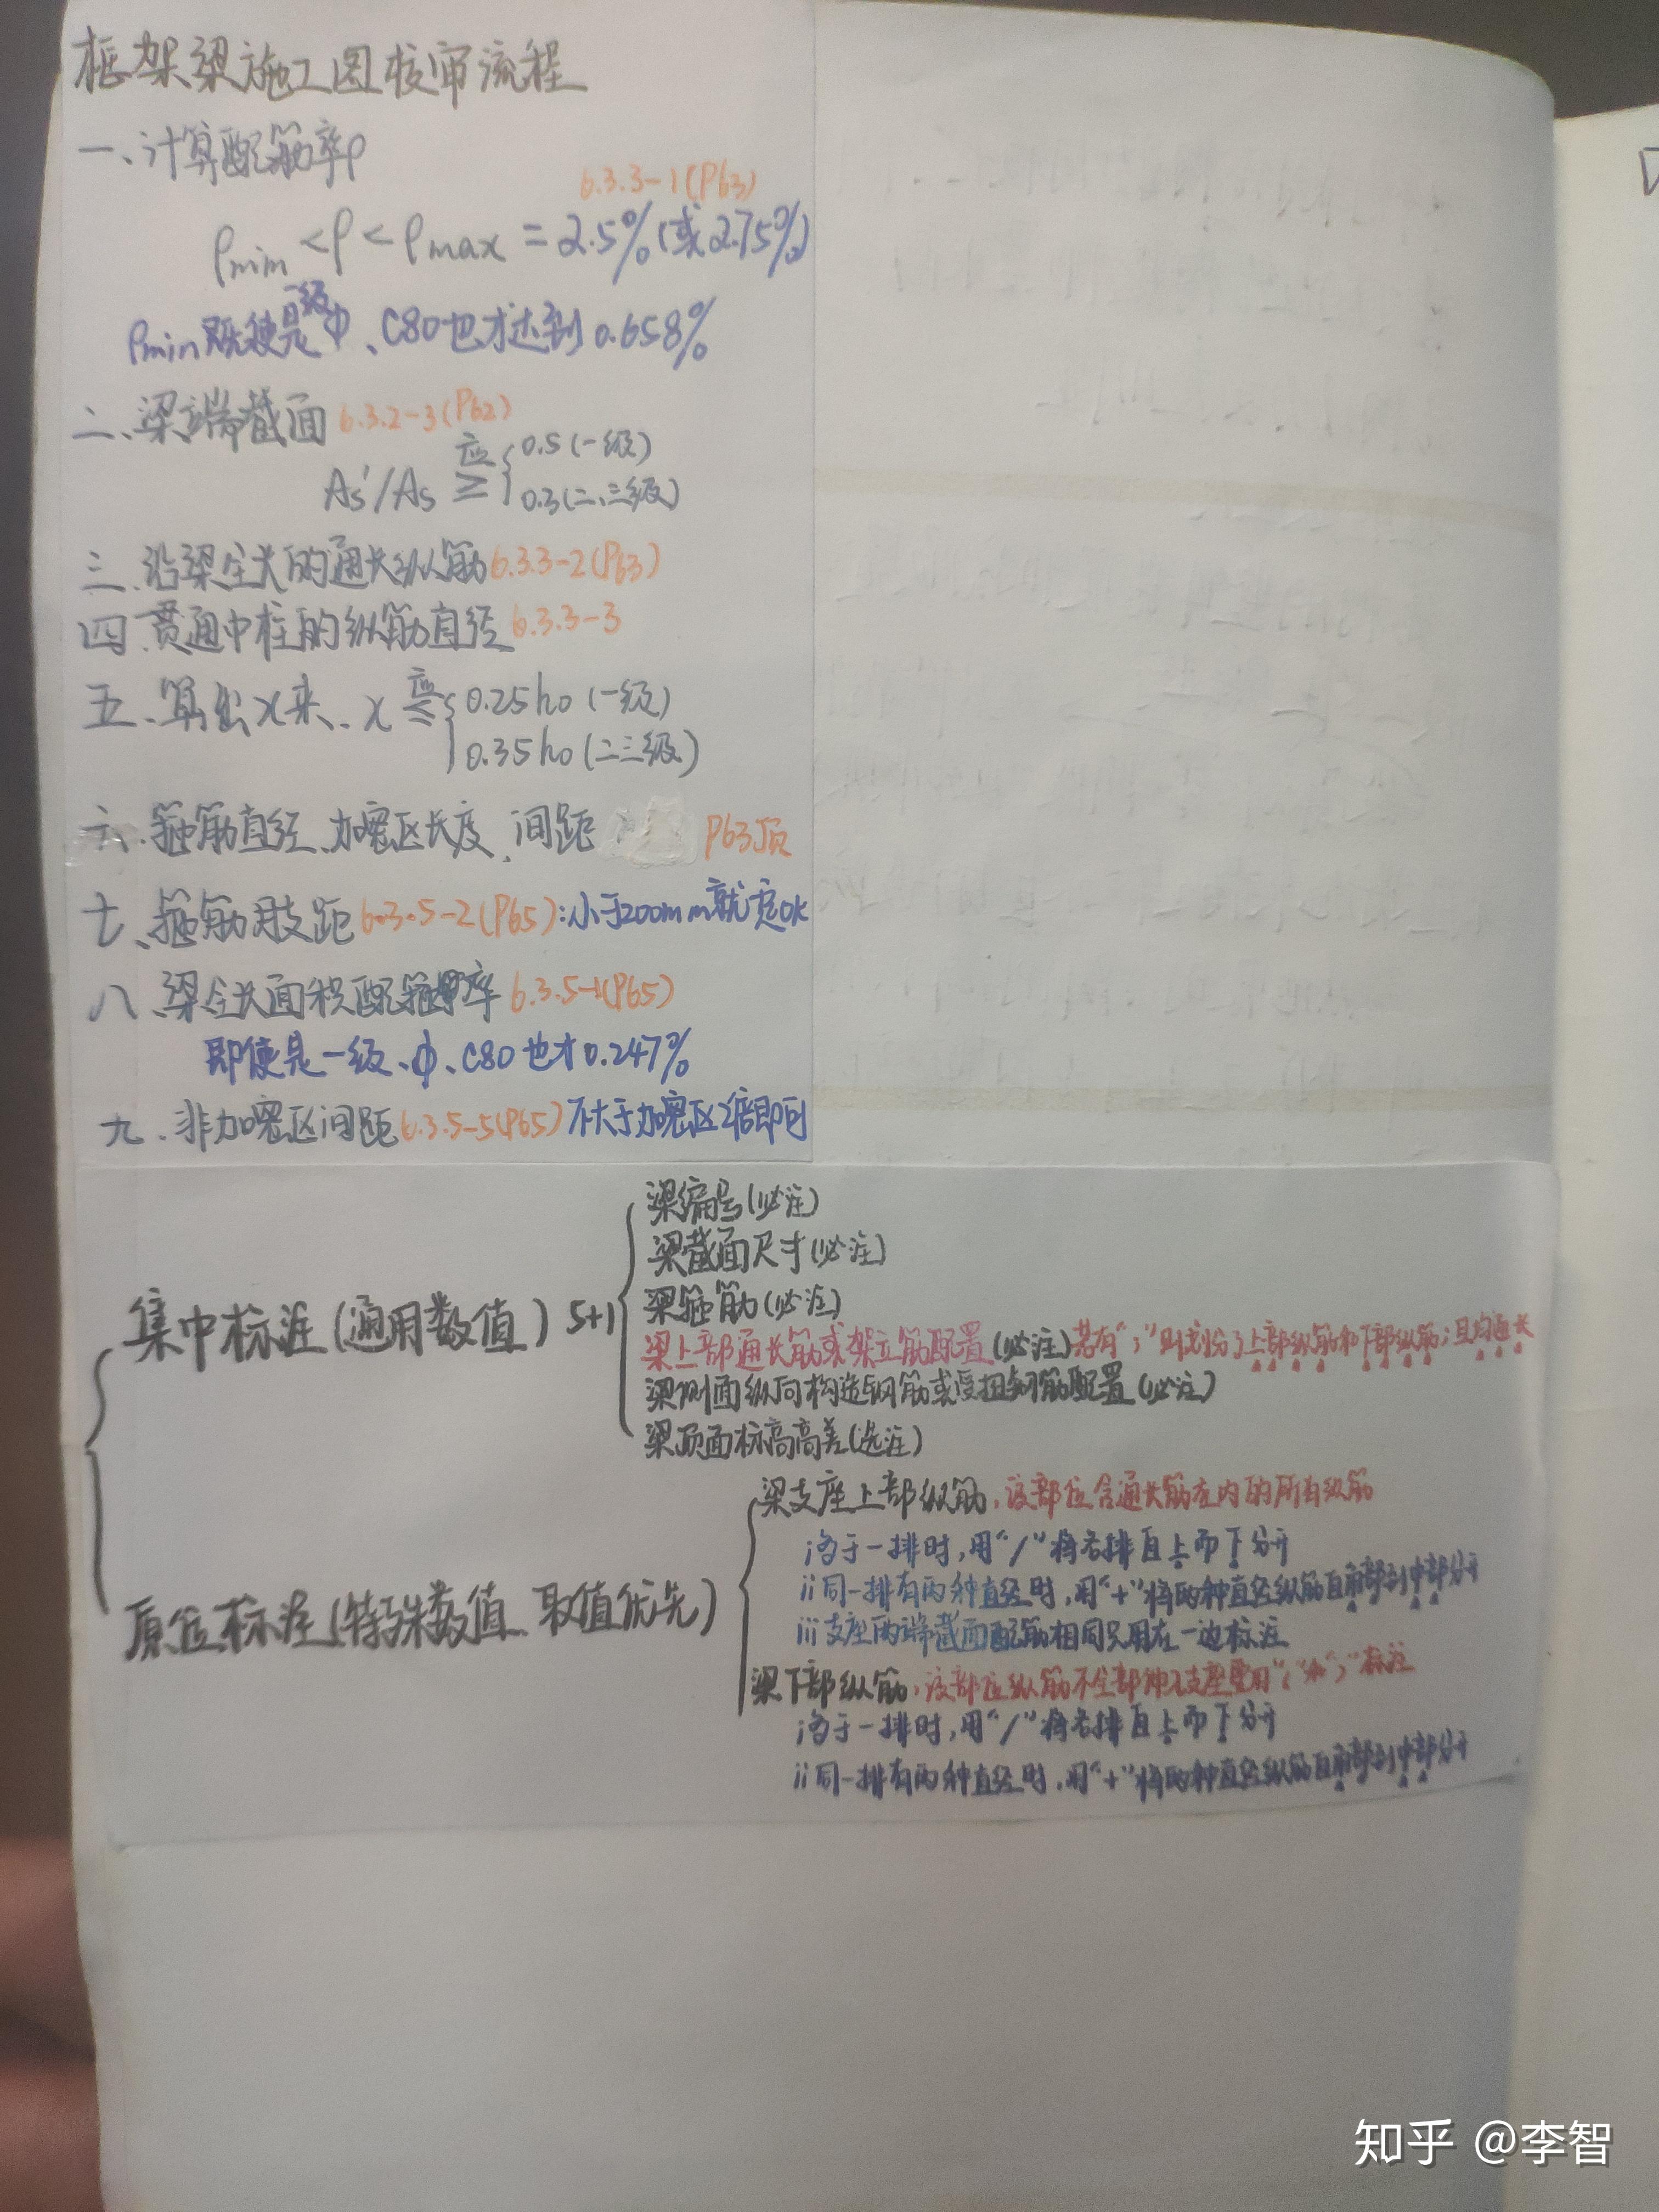 框架梁施工图校审流程
一、计算配筋率ρ
6.3.3-1(P63)
ρmin<ρ<ρmax=2.5%(或2.75%)
一级
ρmin既使是φ、C80也才达到0.658%
二、梁端截面6.3.2-3(P62)
As'/As 应≥{0.5(一级)
0.3(二、三级)
三、沿梁全长的通长纵筋6.3.3-2(P63)
四、贯通中柱的纵筋直径6.3.3-3
五、算出x来、x应≤{0.25h0(一级)
0.35h0(二三级)
六、箍筋直径、加密区长度、间距 P63顶
七、箍筋肢距6.3.5-2(P65):小于200mm就定ok
八、梁全长面积配箍率6.3.5-1(P65)
即使是一级、φ、C80也才0.247%
九、非加密区间距6.3.5-5(P65)不大于加密区2倍即可
梁编号(必注)
梁截面尺寸(必注)
集中标注(通用数值)5+1
梁箍筋(必注)
梁上部通长筋或架立筋配置(必注)若有";"则划分了上部纵筋和下部纵筋;且均通长
梁侧面纵向构造钢筋或受扭钢筋配置(必注)
梁顶面标高高差(选注)
原位标注(特殊数值、取值优先)
梁支座上部纵筋,该部位含通长筋在内的所有纵筋
i多于一排时,用"/"将各排自上而下分开
ii同一排有两种直径时,用"+"将两种直径纵筋自角部到中部分开
iii支座两端截面配筋相同只用在一边标注
梁下部纵筋,该部位纵筋不全部伸入支座要用"("和")"标注
i多于一排时,用"/"将各排自上而下分开
ii同一排有两种直径时,用"+"将两种直径纵筋自角部到中部分开
知乎 @李智